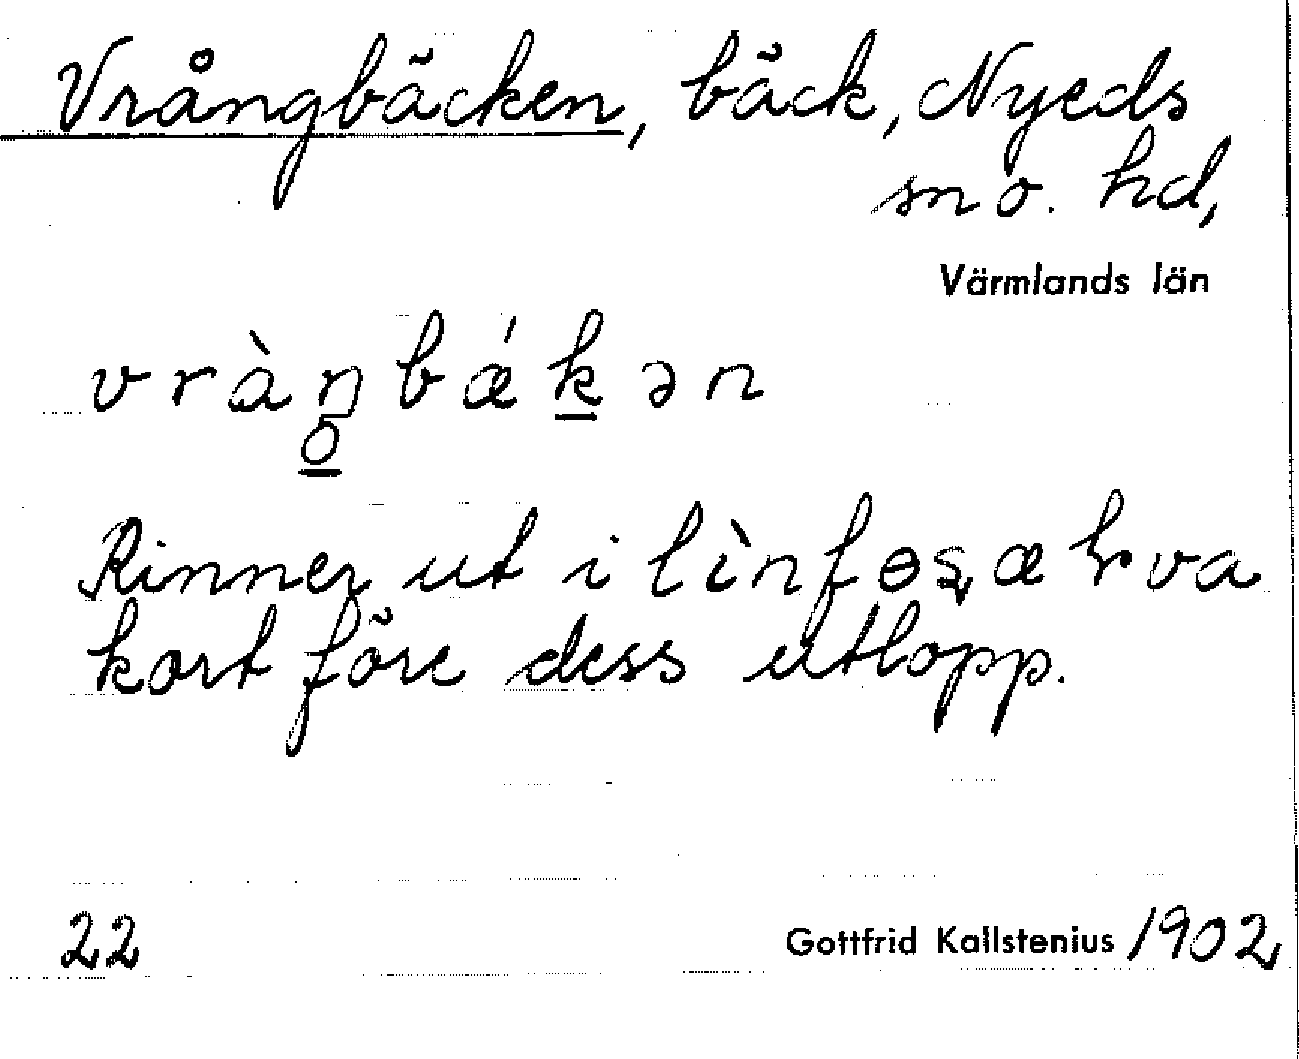 Vrångbäcken, bäck, Nyeds
sn o. hd,
Värmlands län
vràŋbǽk̲ən
o̲
Rinner ut i
kort före dess utlopp.
22 Gottfrid Kallstenius 1902